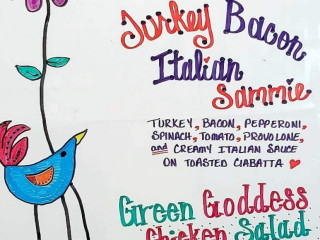 Turkey Bacon
Italian
Sammie
TURKEY, BACON, PEPPERONI,
SPINACH, TOMATO, PROVOLONE,
and CREAMY ITALIAN SAUCE
ON TOASTED CIABATTA
Green Goddess
Chicken Salad